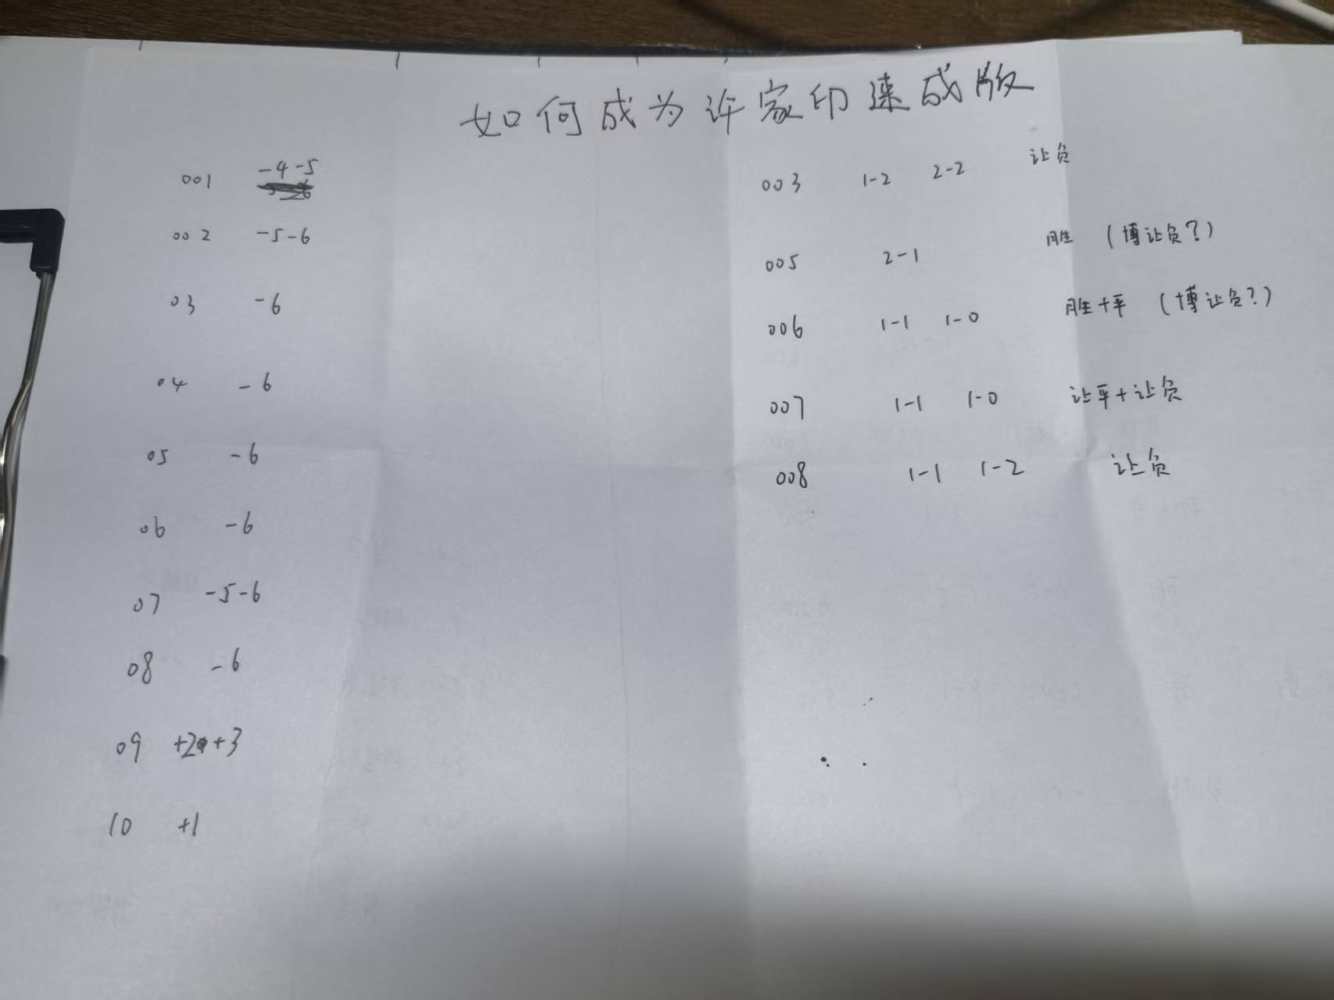 如何成为许家印速成版
001 -4-5
002 -5-6
03 -6
04 -6
05 -6
06 -6
07 -5-6
08 -6
09 +2+3
10 +1
003 1-2 2-2 让负
005 2-1 胜 (博让负?)
006 1-1 1-0 胜+平 (博让负?)
007 1-1 1-0 让平+让负
008 1-1 1-2 让负